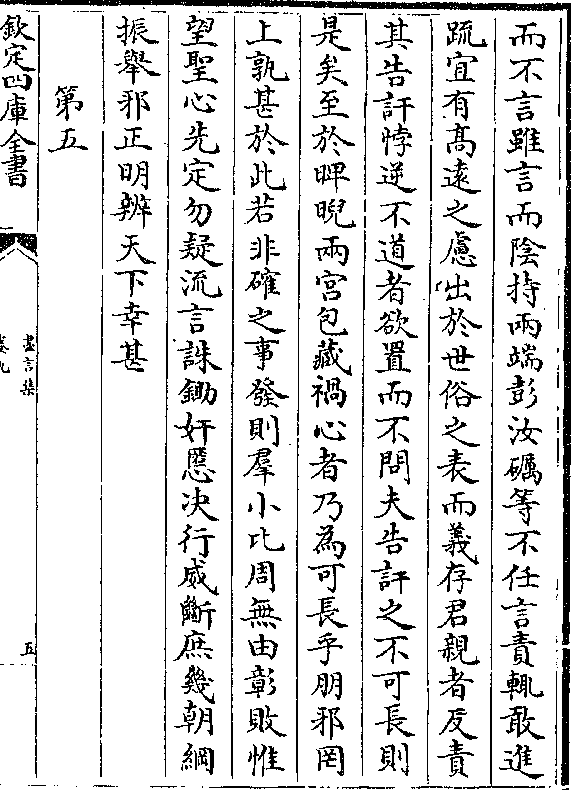 而不言雖言而陰持兩端彭汝礪等不任言責輒敢進
䟽宜有髙逺之慮出於世俗之表而義存君親者反責
其告訐悖逆不道者欲置而不問夫告訐之不可長則
是矣至於睥睨兩宫包藏禍心者乃為可長乎朋邪罔
上孰甚於此若非確之事發則羣小比周無由彰敗惟
望聖心先定勿疑流言誅鋤奸慝决行威斷庶幾朝綱
振舉邪正明辨天下幸甚
第五
欽定四庫全書
盡言集
卷九
五